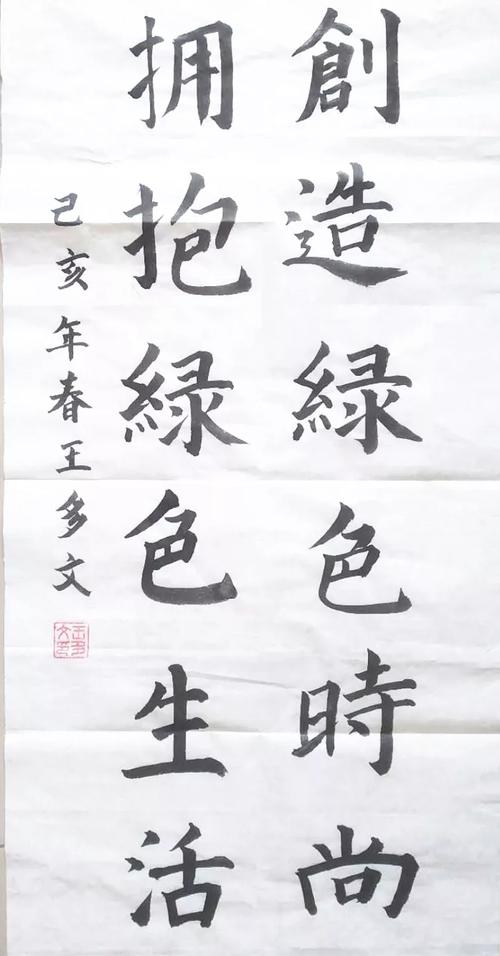 創造緑色時尚
拥抱緑色生活
己亥年春王多文